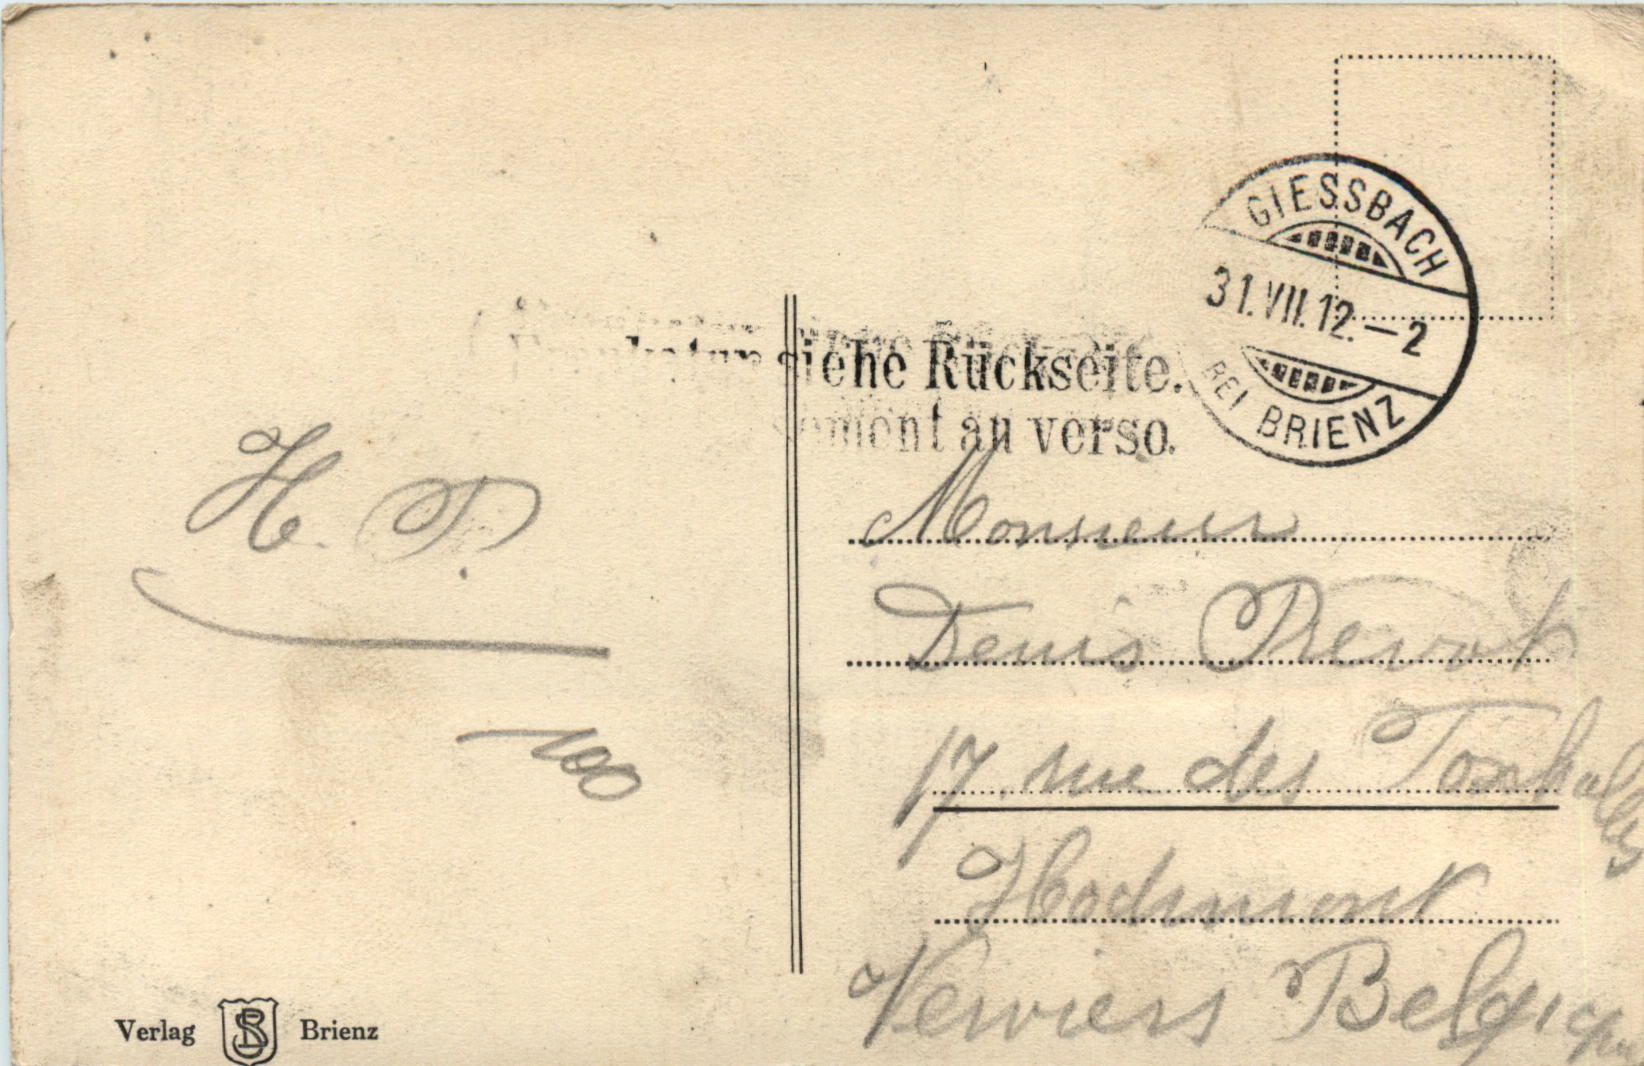 GIESSBACH
31.VII.12.—2
BEI BRIENZ
siehe Rückseite.
au verso.
H. P.
100
Monsieur
Denis Prevot
17 rue des
Hodimont
Verviers Belgique
Verlag SB Brienz